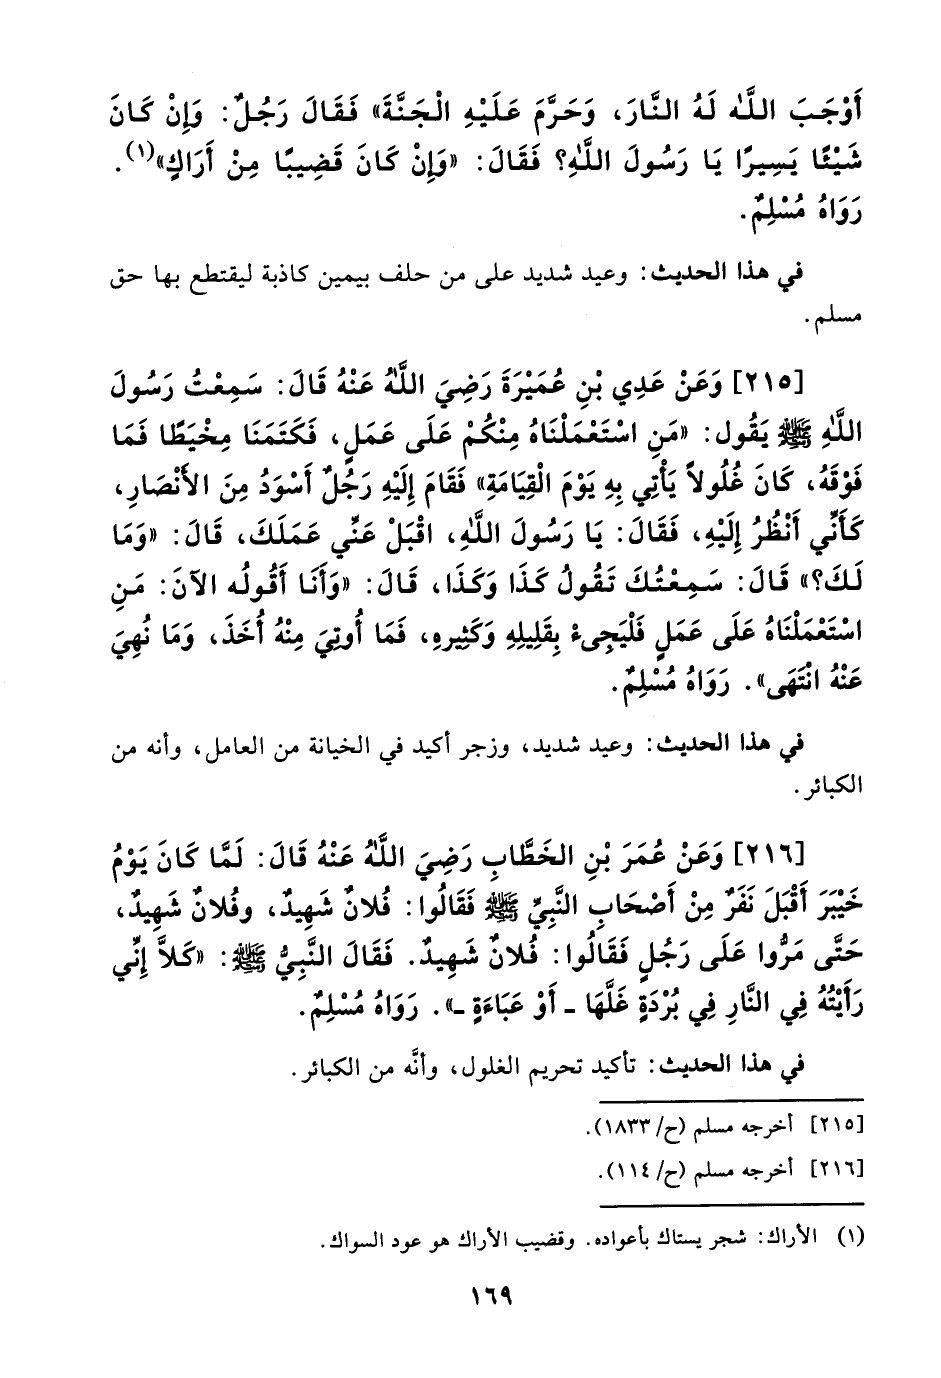 أَوْجَبَ اللَّه لَهُ النَّارَ، وَحَرَّمَ عَلَيْهِ الْجَنَّةَ» فَقَالَ رَجُلٌ: وَإِنْ كَانَ
شَيْئًا يَسِيرًا يَا رَسُولَ اللَّهِ؟ فَقَالَ: «وَإِنْ كَانَ قَضِيبًا مِنْ أَرَاكٍ»(١).
رَوَاهُ مُسْلِمٌ.
في هذا الحديث: وعيد شديد على من حلف بيمين كاذبة ليقتطع بها حق
مسلم.
[٢١٥] وَعَنْ عَدِي بْنِ عُمَيْرَةَ رَضِيَ اللَّهُ عَنْهُ قَالَ: سَمِعْتُ رَسُولَ
اللَّهِ ﷺ يَقُول: «مَنِ اسْتَعْمَلْنَاهُ مِنْكُمْ عَلَى عَمَلٍ، فَكَتَمَنَا مِخْيَطًا فَمَا
فَوْقَهُ، كَانَ غُلُولاً يَأْتِي بِهِ يَوْمَ الْقِيَامَةِ» فَقَامَ إِلَيْهِ رَجُلٌ أَسْوَدُ مِنَ الأَنْصَارِ،
كَأَنِّي أَنْظُرُ إِلَيْهِ، فَقَالَ: يَا رَسُولَ اللَّهِ، اقْبَلْ عَنِّي عَمَلَكَ، قَالَ: «وَمَا
لَكَ؟» قَالَ: سَمِعْتُكَ تَقُولُ كَذَا وَكَذَا، قَالَ: «وَأَنَا أَقُولُه الآنَ: مَنِ
اسْتَعْمَلْنَاهُ عَلَى عَمَلٍ فَلْيَجِيءْ بِقَلِيلِهِ وَكَثِيرِهِ، فَمَا أُوتِيَ مِنْهُ أَخَذَ، وَمَا نُهِيَ
عَنْهُ انْتَهَى». رَوَاهُ مُسْلِمٌ.
في هذا الحديث: وعيد شديد، وزجر أكيد في الخيانة من العامل، وأنه من
الكبائر.
[٢١٦] وَعَنْ عُمَرَ بْنِ الخَطَّابِ رَضِيَ اللَّهُ عَنْهُ قَالَ: لَمَّا كَانَ يَوْمُ
خَيْبَرَ أَقْبَلَ نَفَرٌ مِنْ أَصْحَابِ النَّبِيِّ ﷺ فَقَالُوا: فُلانٌ شَهِيدٌ، وفُلانٌ شَهِيدٌ،
حَتَّى مَرُّوا عَلَى رَجُلٍ فَقَالُوا: فُلانٌ شَهِيدٌ. فَقَالَ النَّبِيُّ ﷺ: «كَلاَّ إِنِّي
رَأَيْتُهُ فِي النَّارِ فِي بُرْدَةٍ غَلَّهَا ـ أَوْ عَبَاءَةٍ ـ». رَوَاهُ مُسْلِمٌ.
في هذا الحديث: تأكيد تحريم الغلول، وأنَّه من الكبائر.
[٢١٥] أخرجه مسلم (ح/١٨٣٣).
[٢١٦] أخرجه مسلم (ح/١١٤).
(١) الأراك: شجر يستاك بأعواده. وقضيب الأراك هو عود السواك.
١٦٩